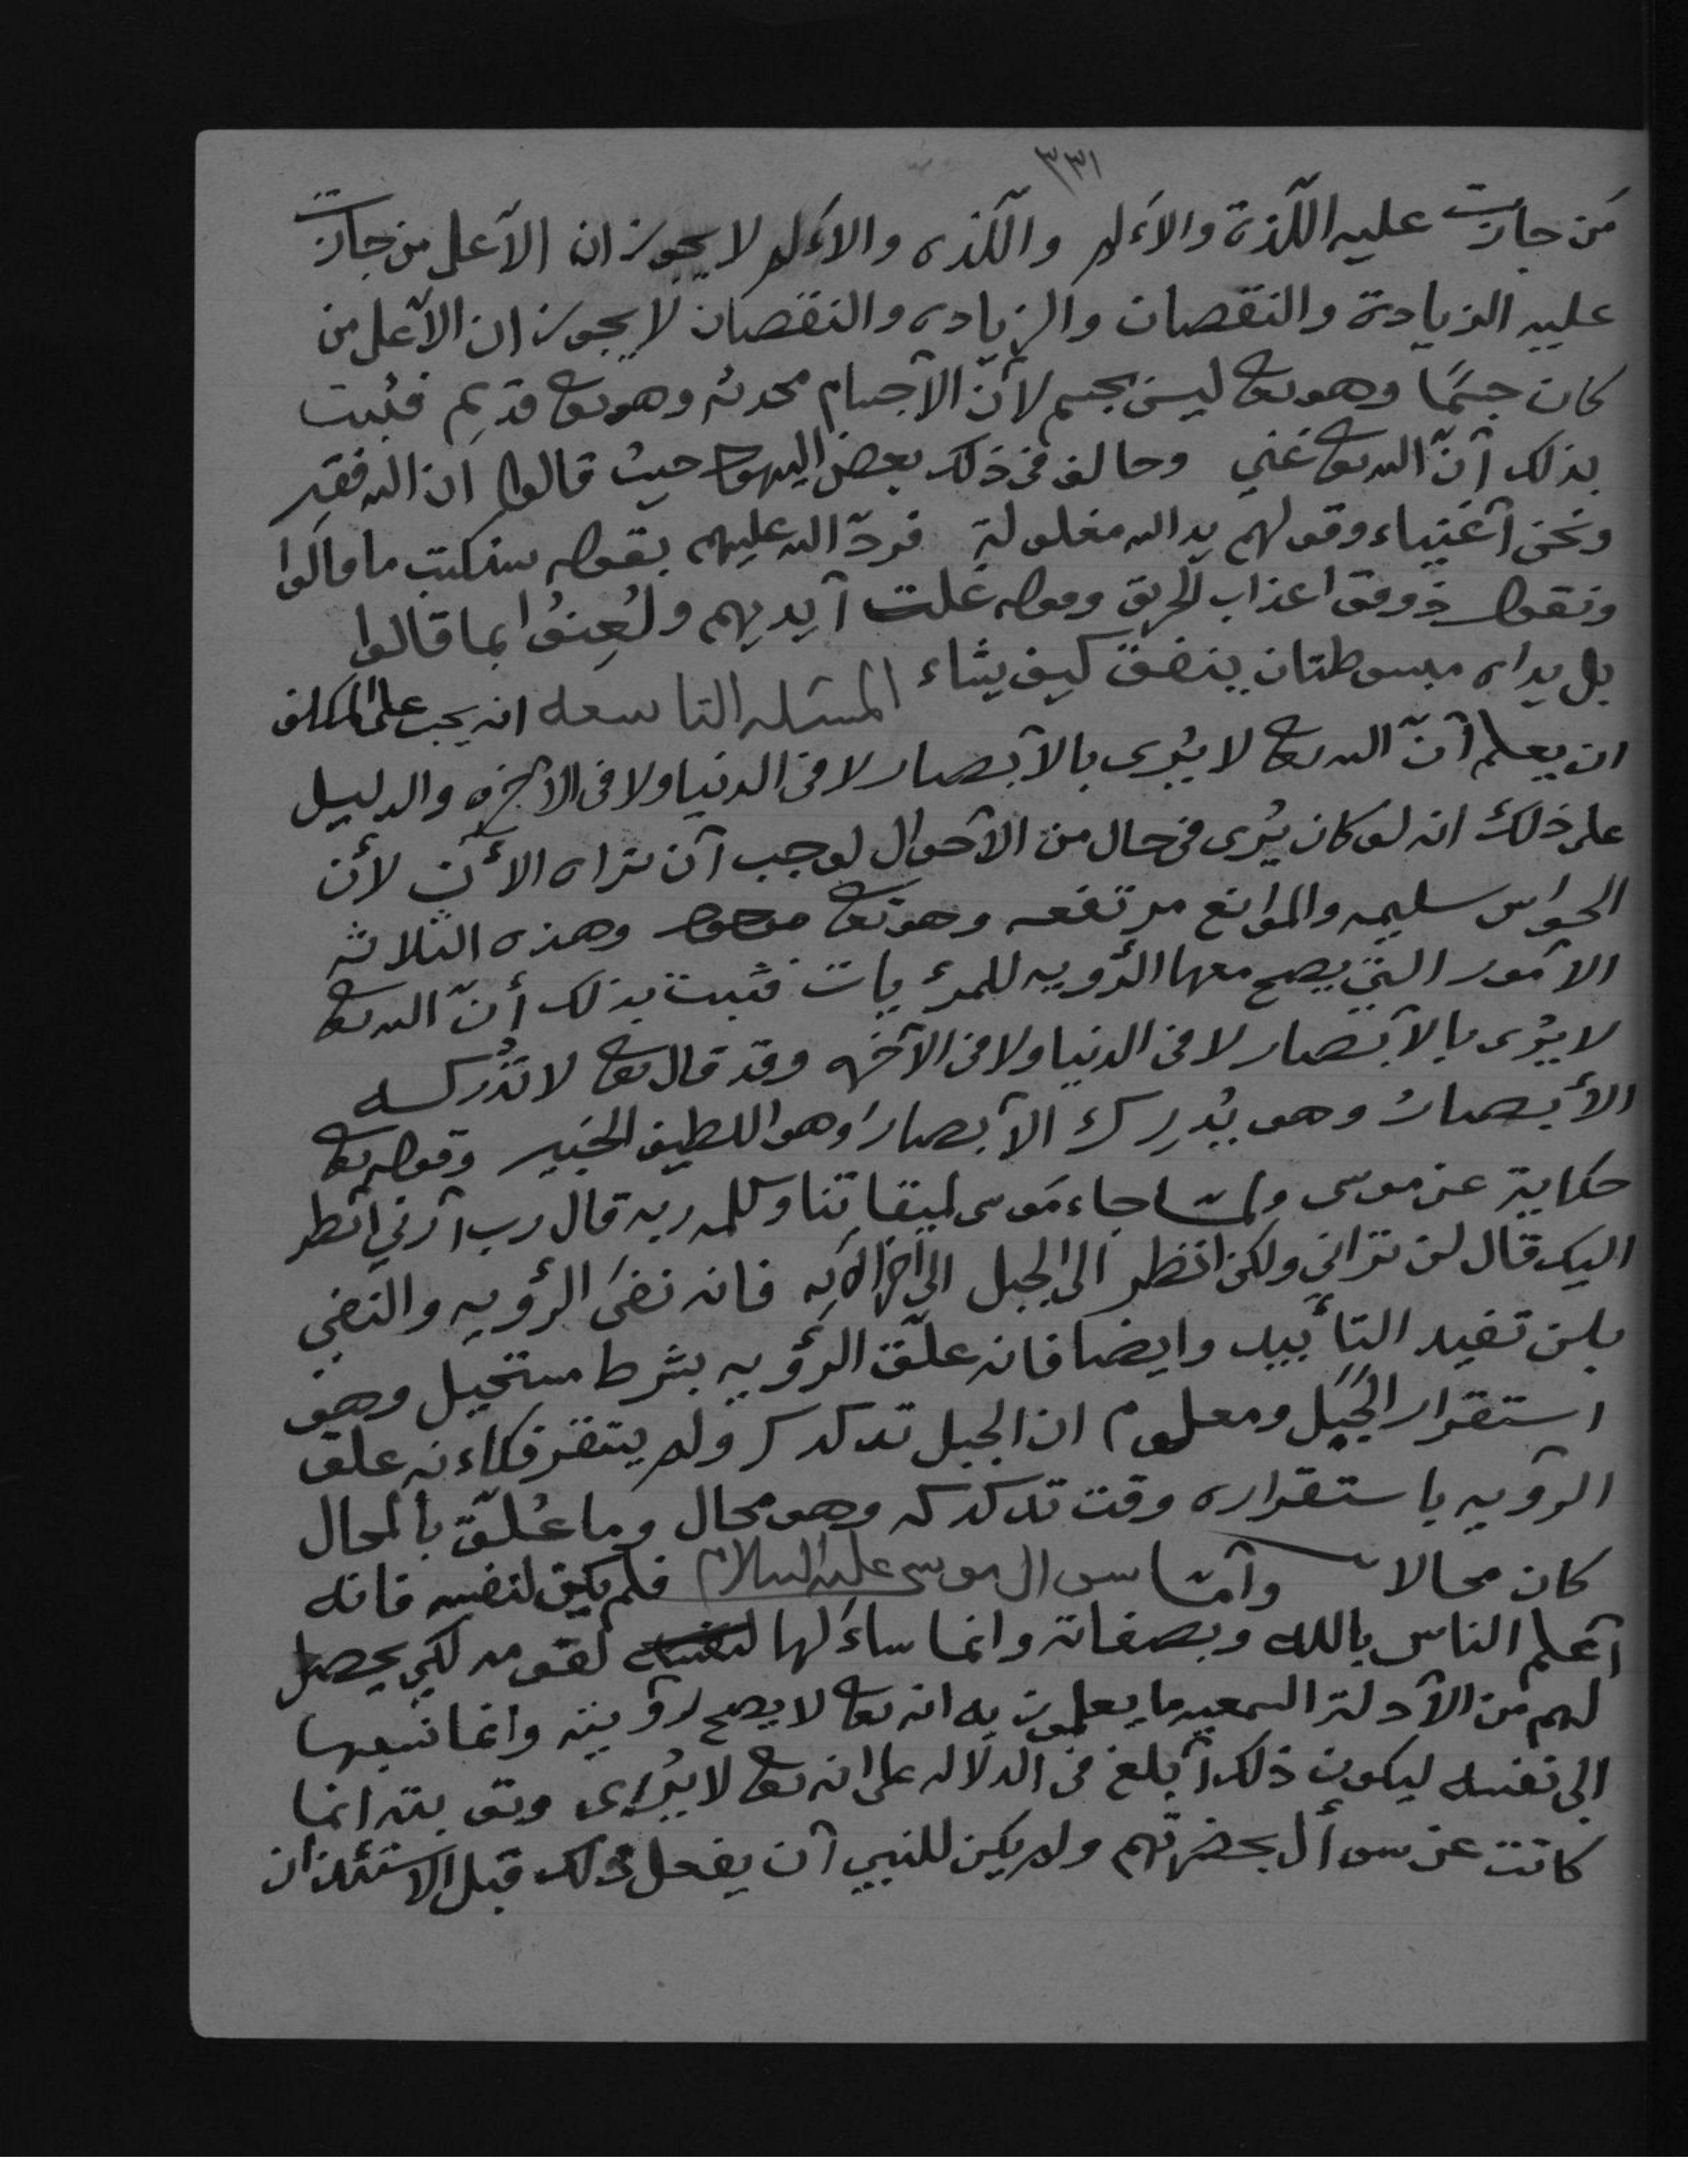 ٣٣١
من جازت عليه اللذة والألم واللذه والألم لا يجوزان الا على من جازت
عليه الزيادة والنقصان والزياده والنقصان لا يجوزان الا على من
كان جسمًا وهو تعا ليس بجسم لأنّ الأجسام محدثه وهو تعا قديم فثبت
بذلك أنّ الله تعا غني وخالف في ذلك بعض اليهود حيث قالوا ان الله فقير
ونحن أغنياء وقولهم يد الله مغلولة فردّ الله عليهم بقوله سنكتب ما قالوا
ونقول ذوقوا عذاب الحريق وقوله غلت أيديهم ولُعِنُوا بما قالوا
بل يداه مبسوطتان ينفق كيف يشاء المسئله التاسعه انه يجب على المكلف
ان يعلم أنّ الله تعا لا يُرى بالأبصار لا في الدنيا ولا في الآخره والدليل
على ذلك انه لو كان يُرى في حال من الأحوال لوجب أن نراه الأن لأن
الحواس سليمه والموانع مرتفعه وهو تعا موجود وهذه الثلاثه
الأمور التي يصح معها الرؤيه للمرئيات فثبت بذلك أنّ الله تعا
لا يُرى بالأبصار لا في الدنيا ولا في الآخره وقد قال تعا لا تُدركه
الأبصارُ وهو يُدرِك الأبصارَ وهو اللطيف الخبير وقوله تعا
حكاية عن موسى ولمّا جاء موسى لميقاتنا وكلمه ربه قال رب أرني انظر
اليك قال لن تراني ولكن انظر الى الجبل الى اخر الآيه فانه نفى الرؤيه والنفي
بلن تفيد التأبيد وايضا فانه علّق الرؤيه بشرط مستحيل وهو
استقرار الجَبَل ومعلوم ان الجبل تدكدك ولم يستقر فكاءنه علق
الرؤيه باستقراره وقت تدكدكه وهو محال وما عُلّق بالمحال
كان محالا وأمّا سوال موسى عليه السلام فلم يكن لنفسه فانه
أعلم الناس بالله وبصفاته وانما ساءَلها لنفسه لقومه لكي يحصل
لهم من الأدلة السمعيه ما يعلمون به انه تعا لا يصح رؤيته وانما نسبها
الى نفسه ليكون ذلك أبلغ في الدلاله على انه تعا لا يُرى وتوبته انما
كانت عن سوأل بحضرتهم ولم يكن للنبي أن يفعل ذلك قبل الاستئذان